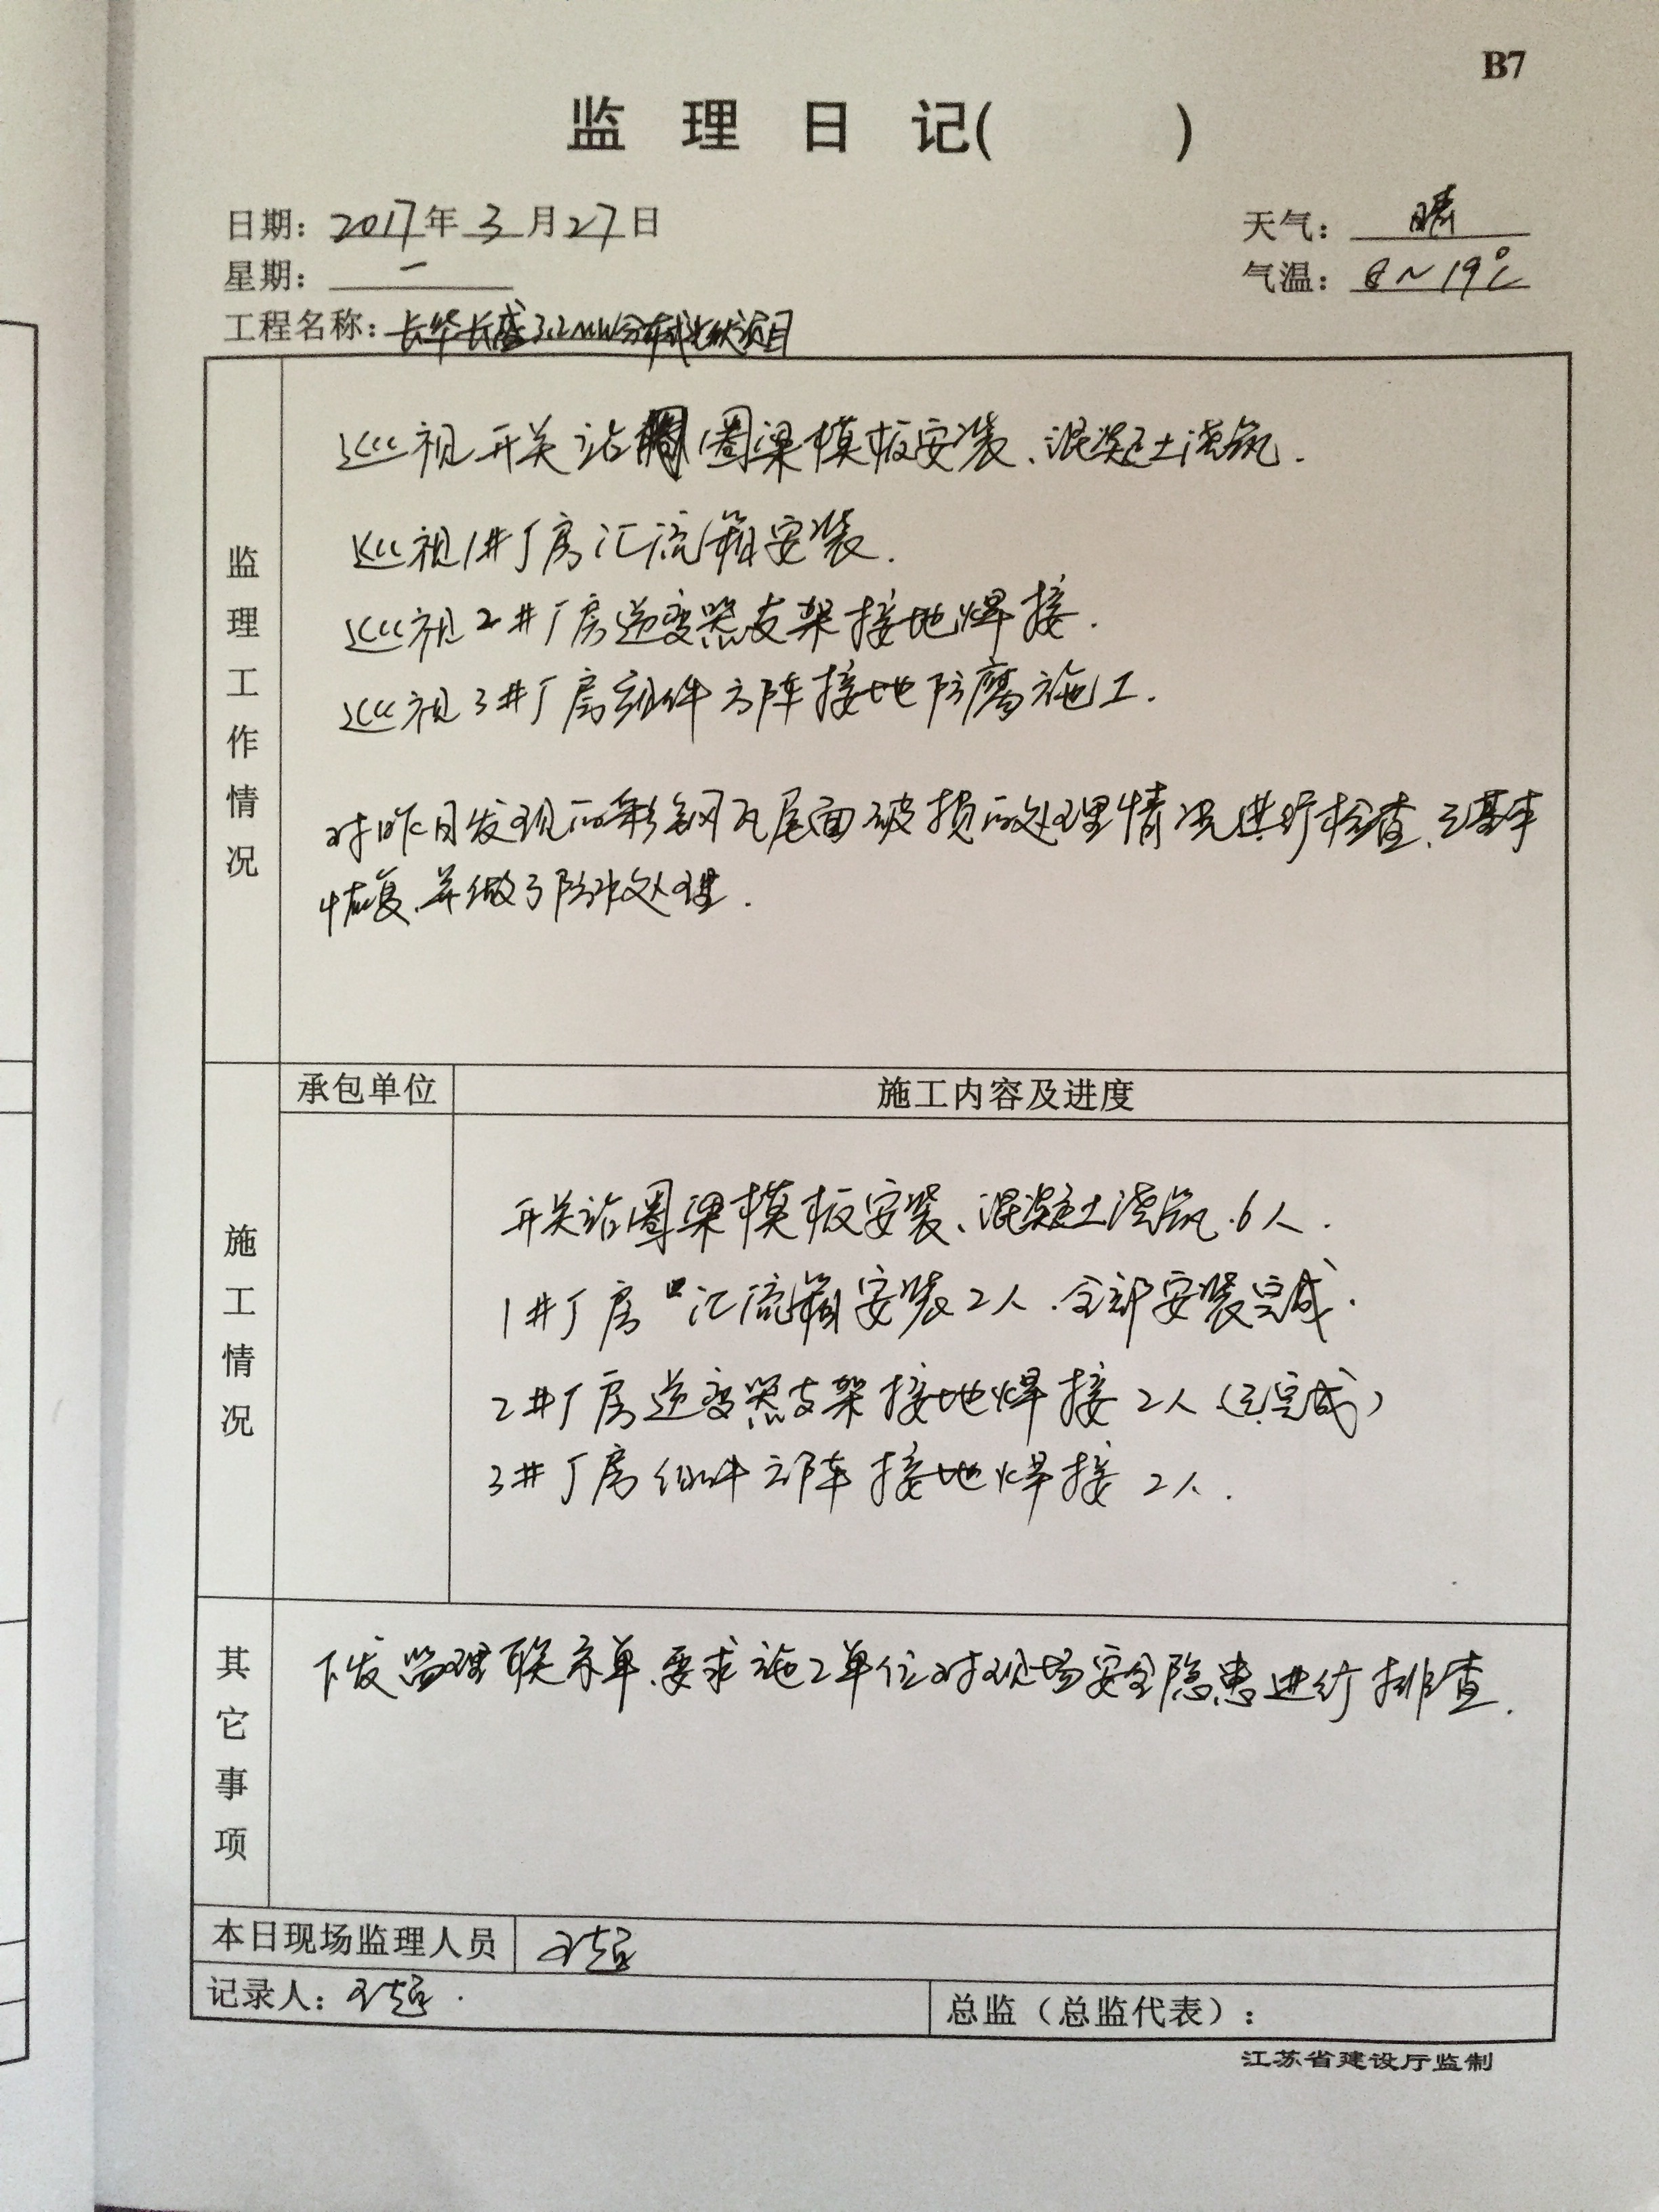 B7
监理日记(      )
日期：2017年3月27日
天气：晴
星期：一
气温：8～19℃
工程名称：长华长盛3.2MW分布式光伏项目
监理工作情况
巡视开关站圈梁模板安装、混凝土浇筑.
巡视1#厂房汇流箱安装.
巡视2#厂房逆变器支架接地焊接.
巡视3#厂房组件方阵接地防腐施工.
对昨日发现的彩钢瓦屋面破损的处理情况进行检查、已基本
恢复、并做了防水处理.
承包单位
施工内容及进度
施工情况
开关站圈梁模板安装、混凝土浇筑.6人.
1#厂房汇流箱安装2人.全部安装完成.
2#厂房逆变器支架接地焊接2人(已完成)
3#厂房组件方阵接地焊接2人.
其它事项
下发监理联系单、要求施工单位对现场安全隐患进行排查.
本日现场监理人员 王超
记录人：王超.
总监（总监代表）：
江苏省建设厅监制